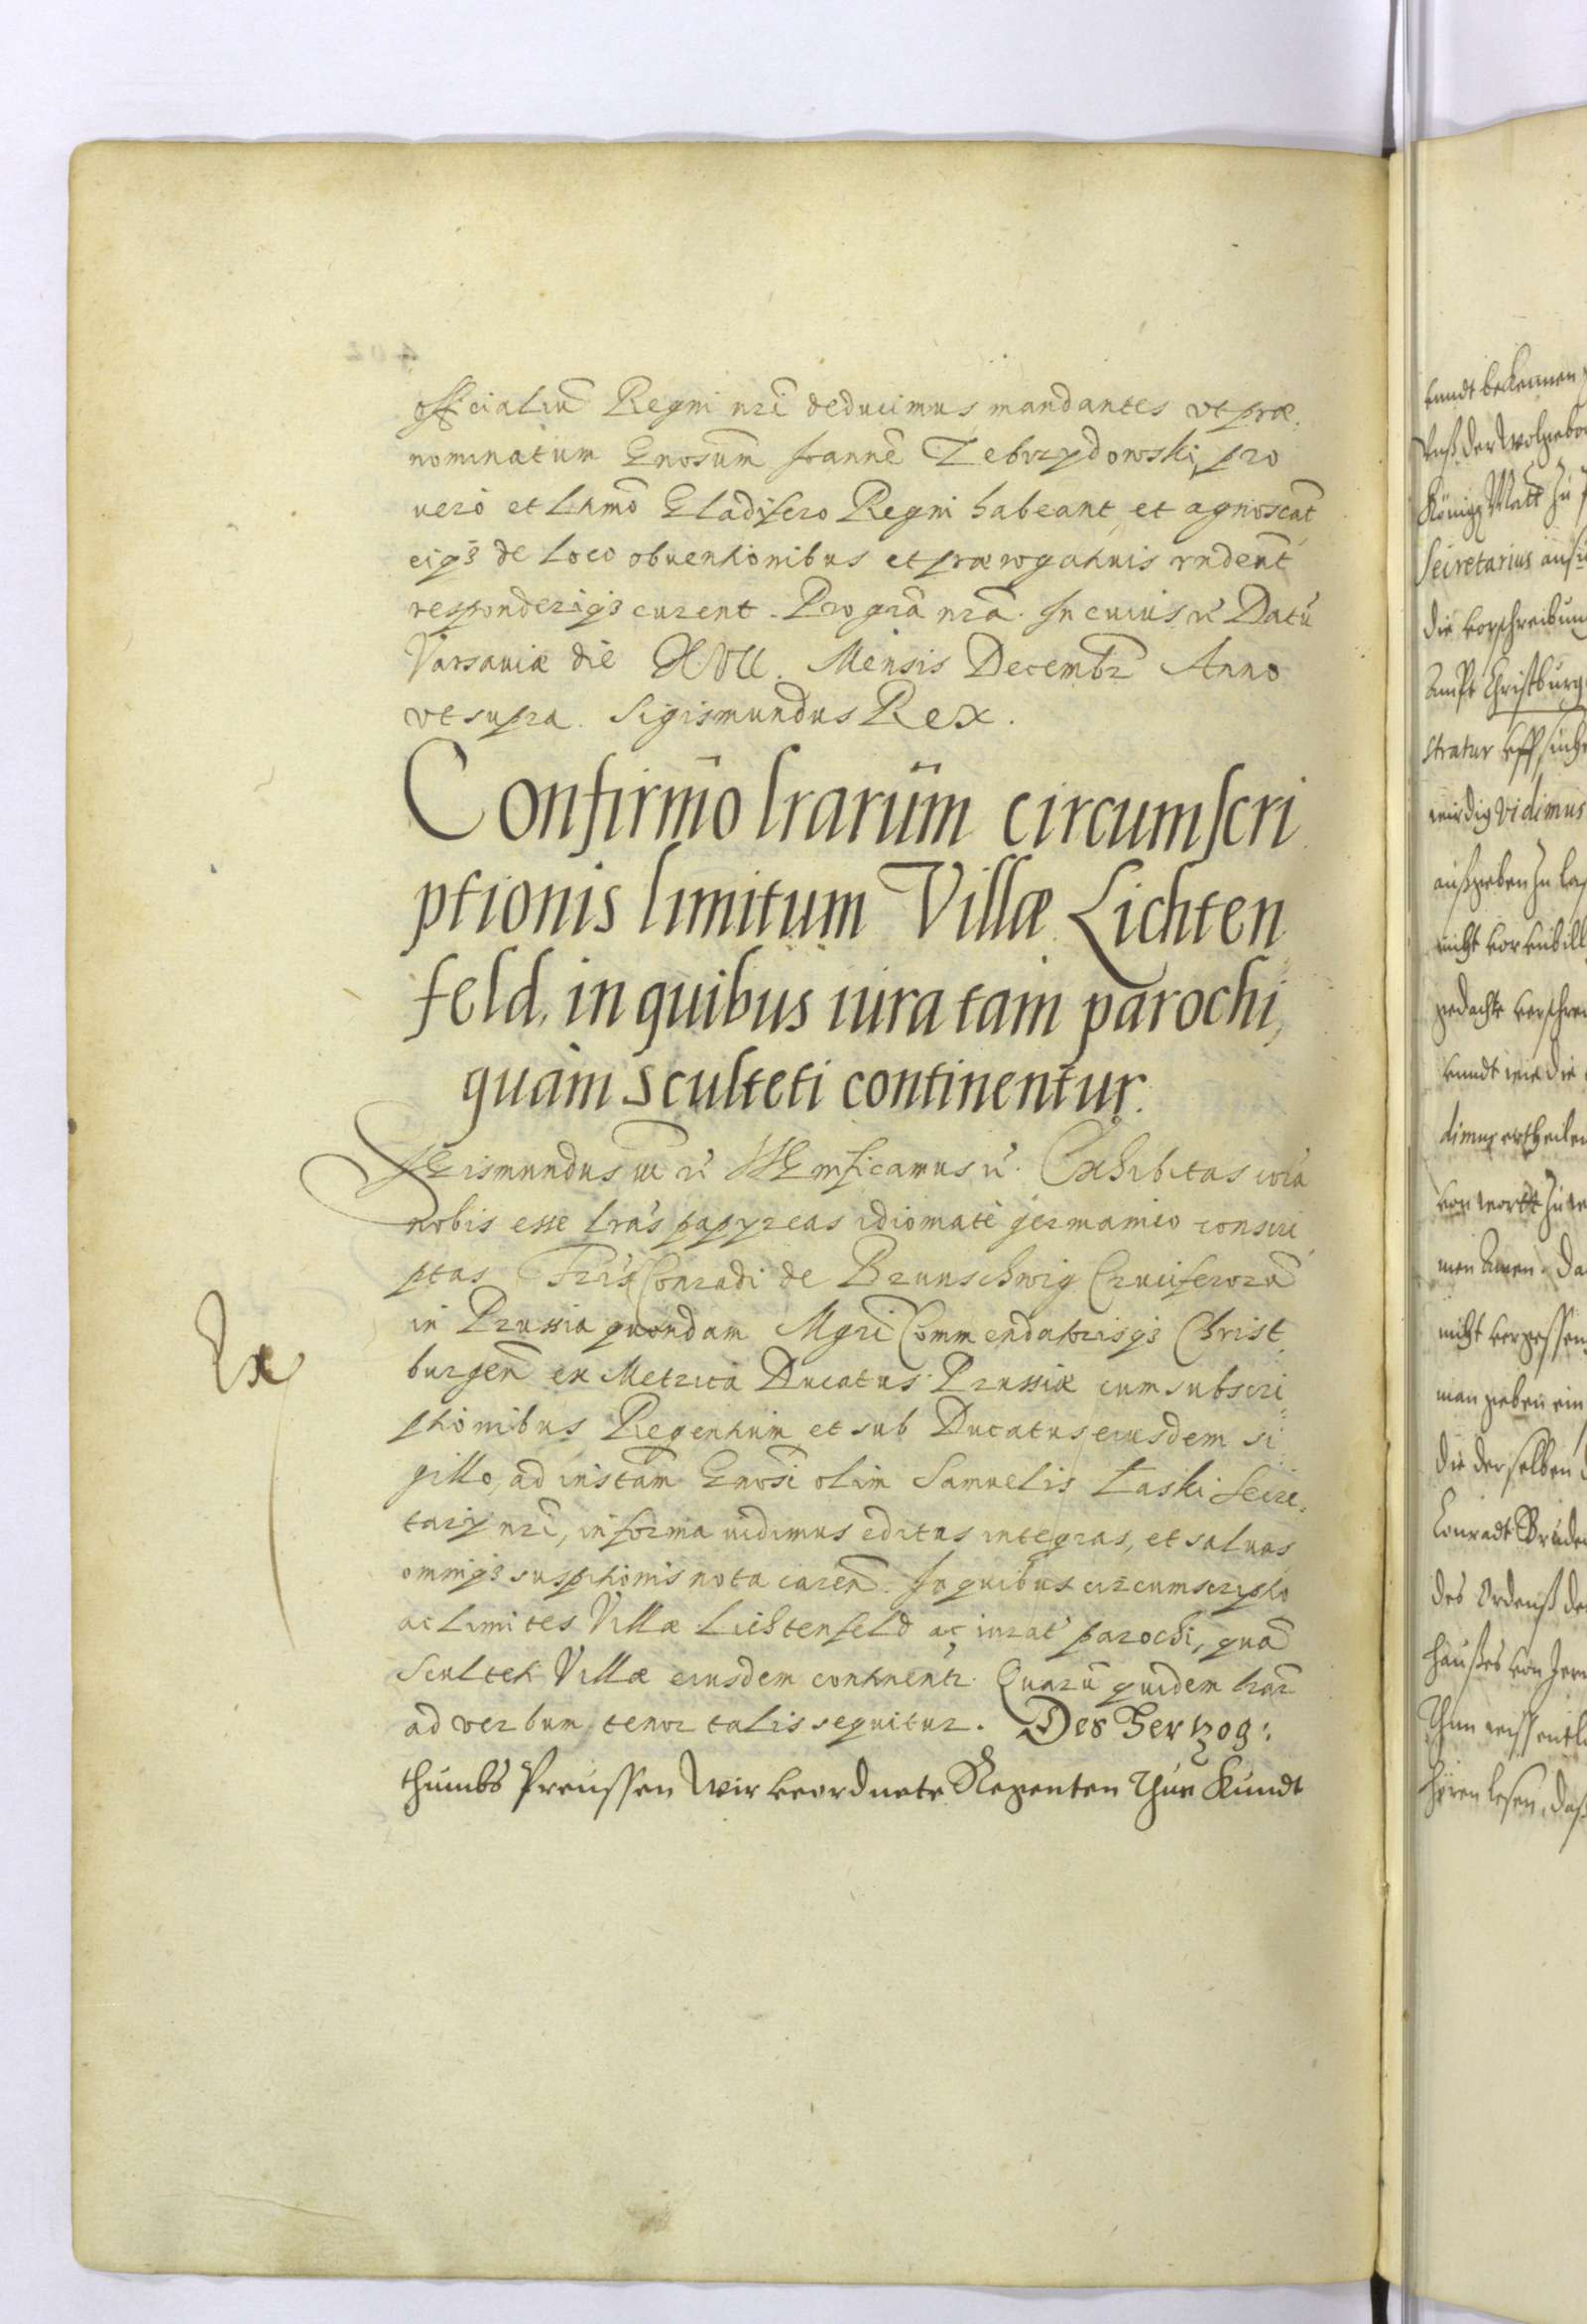 officialiũ Regni nri deducimus mandantes vt præ
nominatum Gnosum Joannẽ Zebrzydowski, pro
uero et Lttmo Gladifero Regni habeant, et agnoscãt
eiq3 de loco obuentionibus et prærogatiuis rndent
responderiq3 curent. Pro gra nra. In cuius rˢ Datũ
Varsauiæ die XVII. Mensis Decembr Anno
vt supra. Sigismundus Rex.
Confirmo lrarum circumscri
ptionis limitum Villæ Lichten
feld, in quibus iura tam parochi,
quam sculteti continentur.
Sigismundus III rˢ Significamus rˢ. Exhibitas corã
nobis esse lras papyreas idiomate germanico conscri
ptas Fris Conradi de Brunschwig Cruciferorũ
in Prussia quondam Mgri Commendatorisq3 Christ
burgen̄ ex Metrica Ducatus Prussiæ cum subscri
ptionibus Regentium et sub Ducatus eiusdem si
gillo, ad instam Gnosi olim Samuelis Łaski Secre
tarij nri, in forma uidimus editas integras, et saluas
omniq3 suspitionis nota caren̄. In quibus circumscriptio
ac limites Villæ Lichtenfeld ac iura t parochi, quã
Sculteti Villæ eiusdem continentr. Quarũ quidem lrar
ad verbum tenor talis sequitur. Des Hertzog:
thumbs Preussen Wir verordnete Regenten Thun Kundt
Ex
kundt bekennen
Secretarius
die vorschreibung
Ampt Christburg
wirdig vidimus
außgeben zu
gedachte
kundt wie die
von wortt zu
men Amen. Da
nicht vergessen
man geben ein
die derselben
Conradt Bruder
des Ordens
hauses von
hören lesen, daß